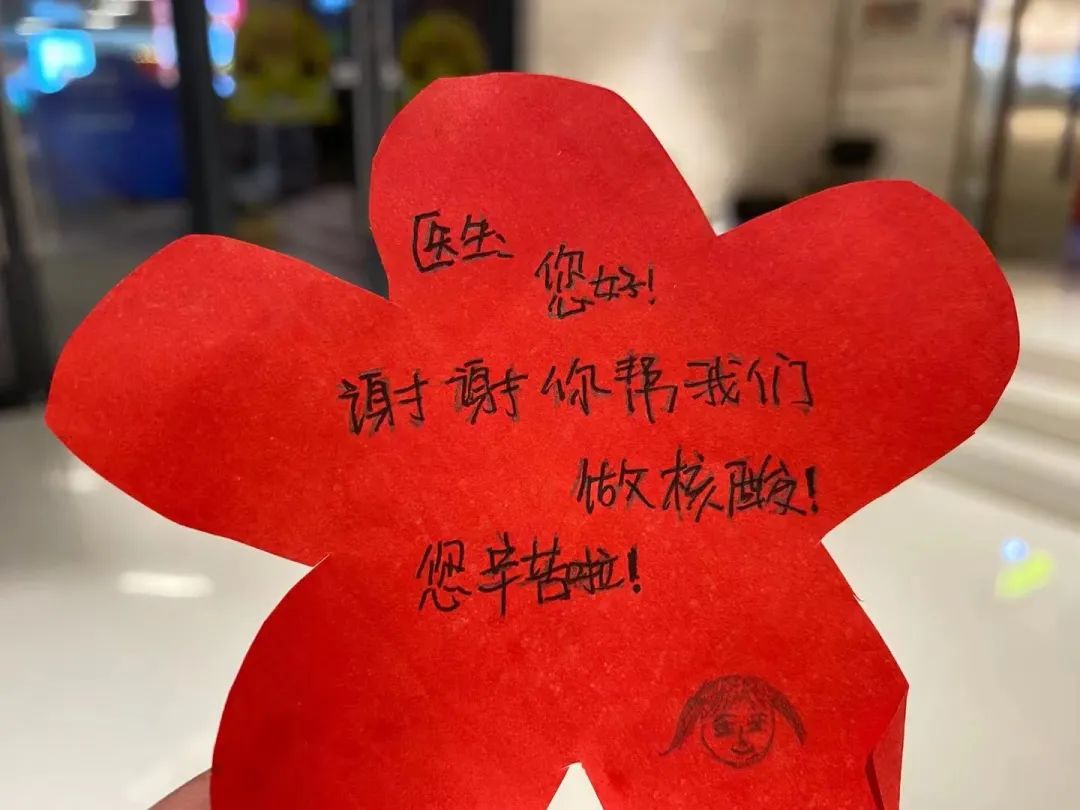 医生
您好!
谢谢你帮我们
做核酸!
您辛苦啦!